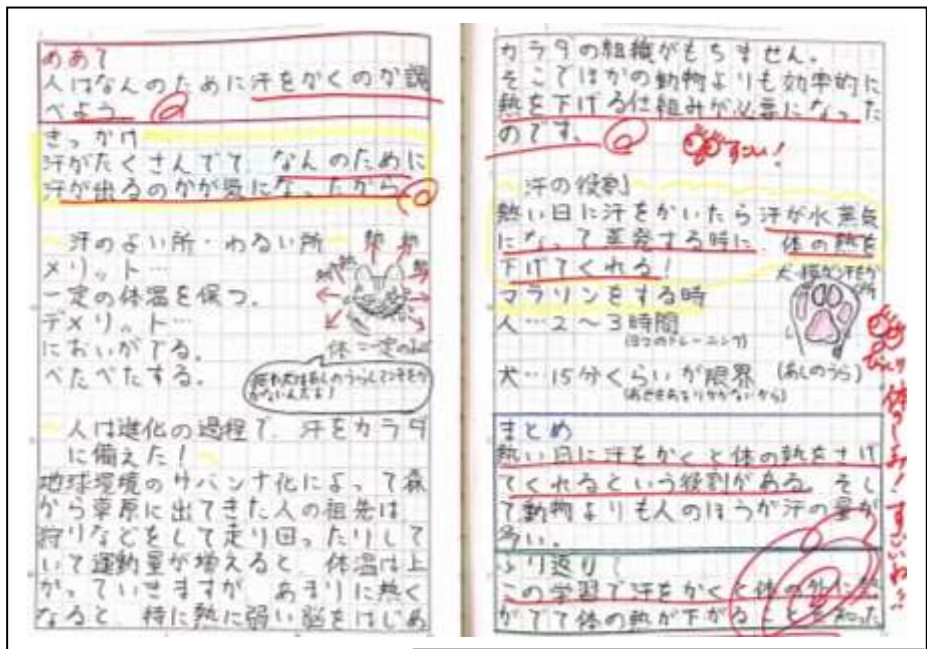 めあて
人はなんのために汗をかくのか調
べよう。
きっかけ
汗がたくさんでて、なんのために
汗が出るのかが気になったから
汗のよい所・わるい所
メリット…
一定の体温を保つ。
デメリット…
においがでる。
べたべたする。
熱 熱
体=一定の
人は進化の過程で、汗をカラダ
に備えた!
地球環境のサバンナ化によって森
から草原に出てきた人の祖先は、
狩りなどをして走り回ったりして
いて運動量が増えると、体温は上
がっていきますが、あまりに熱く
なると、特に熱に弱い脳をはじめ
カラダの組織がもちません。
そこでほかの動物よりも効率的に
熱を下げる仕組みが必要になった
のです。
すごい!
汗の役割
熱い日に汗をかいたら汗が水蒸気
になって蒸発する時に、体の熱を
下げてくれる!
マラソンをする時
人…2〜3時間
(日々のトレーニング)
犬…15分くらいが限界
(あせをあまりかかないから)
(あしのうら)
びっくり
まとめ
熱い日に汗をかくと体の熱をさげ
てくれるという役割がある。そし
て動物よりも人のほうが汗の量が
多い。
ふり返り
この学習で汗をかくと体の外に
がでて体の熱が下がることを知った
すごいわ!!